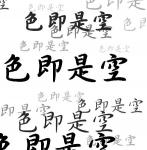 色即是空
色即是空
色即是空
色即是空
色即是空
色即是空
色即是空
色即是空
色即是空